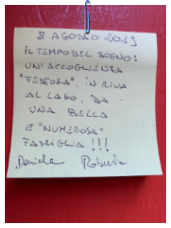 8 AGOSTO 2013
IL TEMPO DEL SOGNO:
UN'ACCOGLIENZA
"FESTOSA", IN RIVA
AL LAGO, DA
UNA BELLA
E "NUMEROSA"
FAMIGLIA!!!
Daniela Roberta